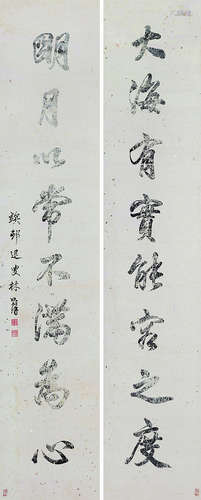 大海有實能容之度
明月以常不滿為心
竢邨退叟林則徐